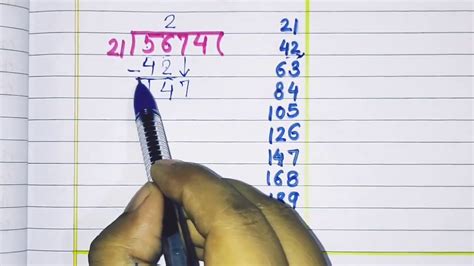 2
21 5674
- 42 ↓
147
21
42
63
84
105
126
147
168
189